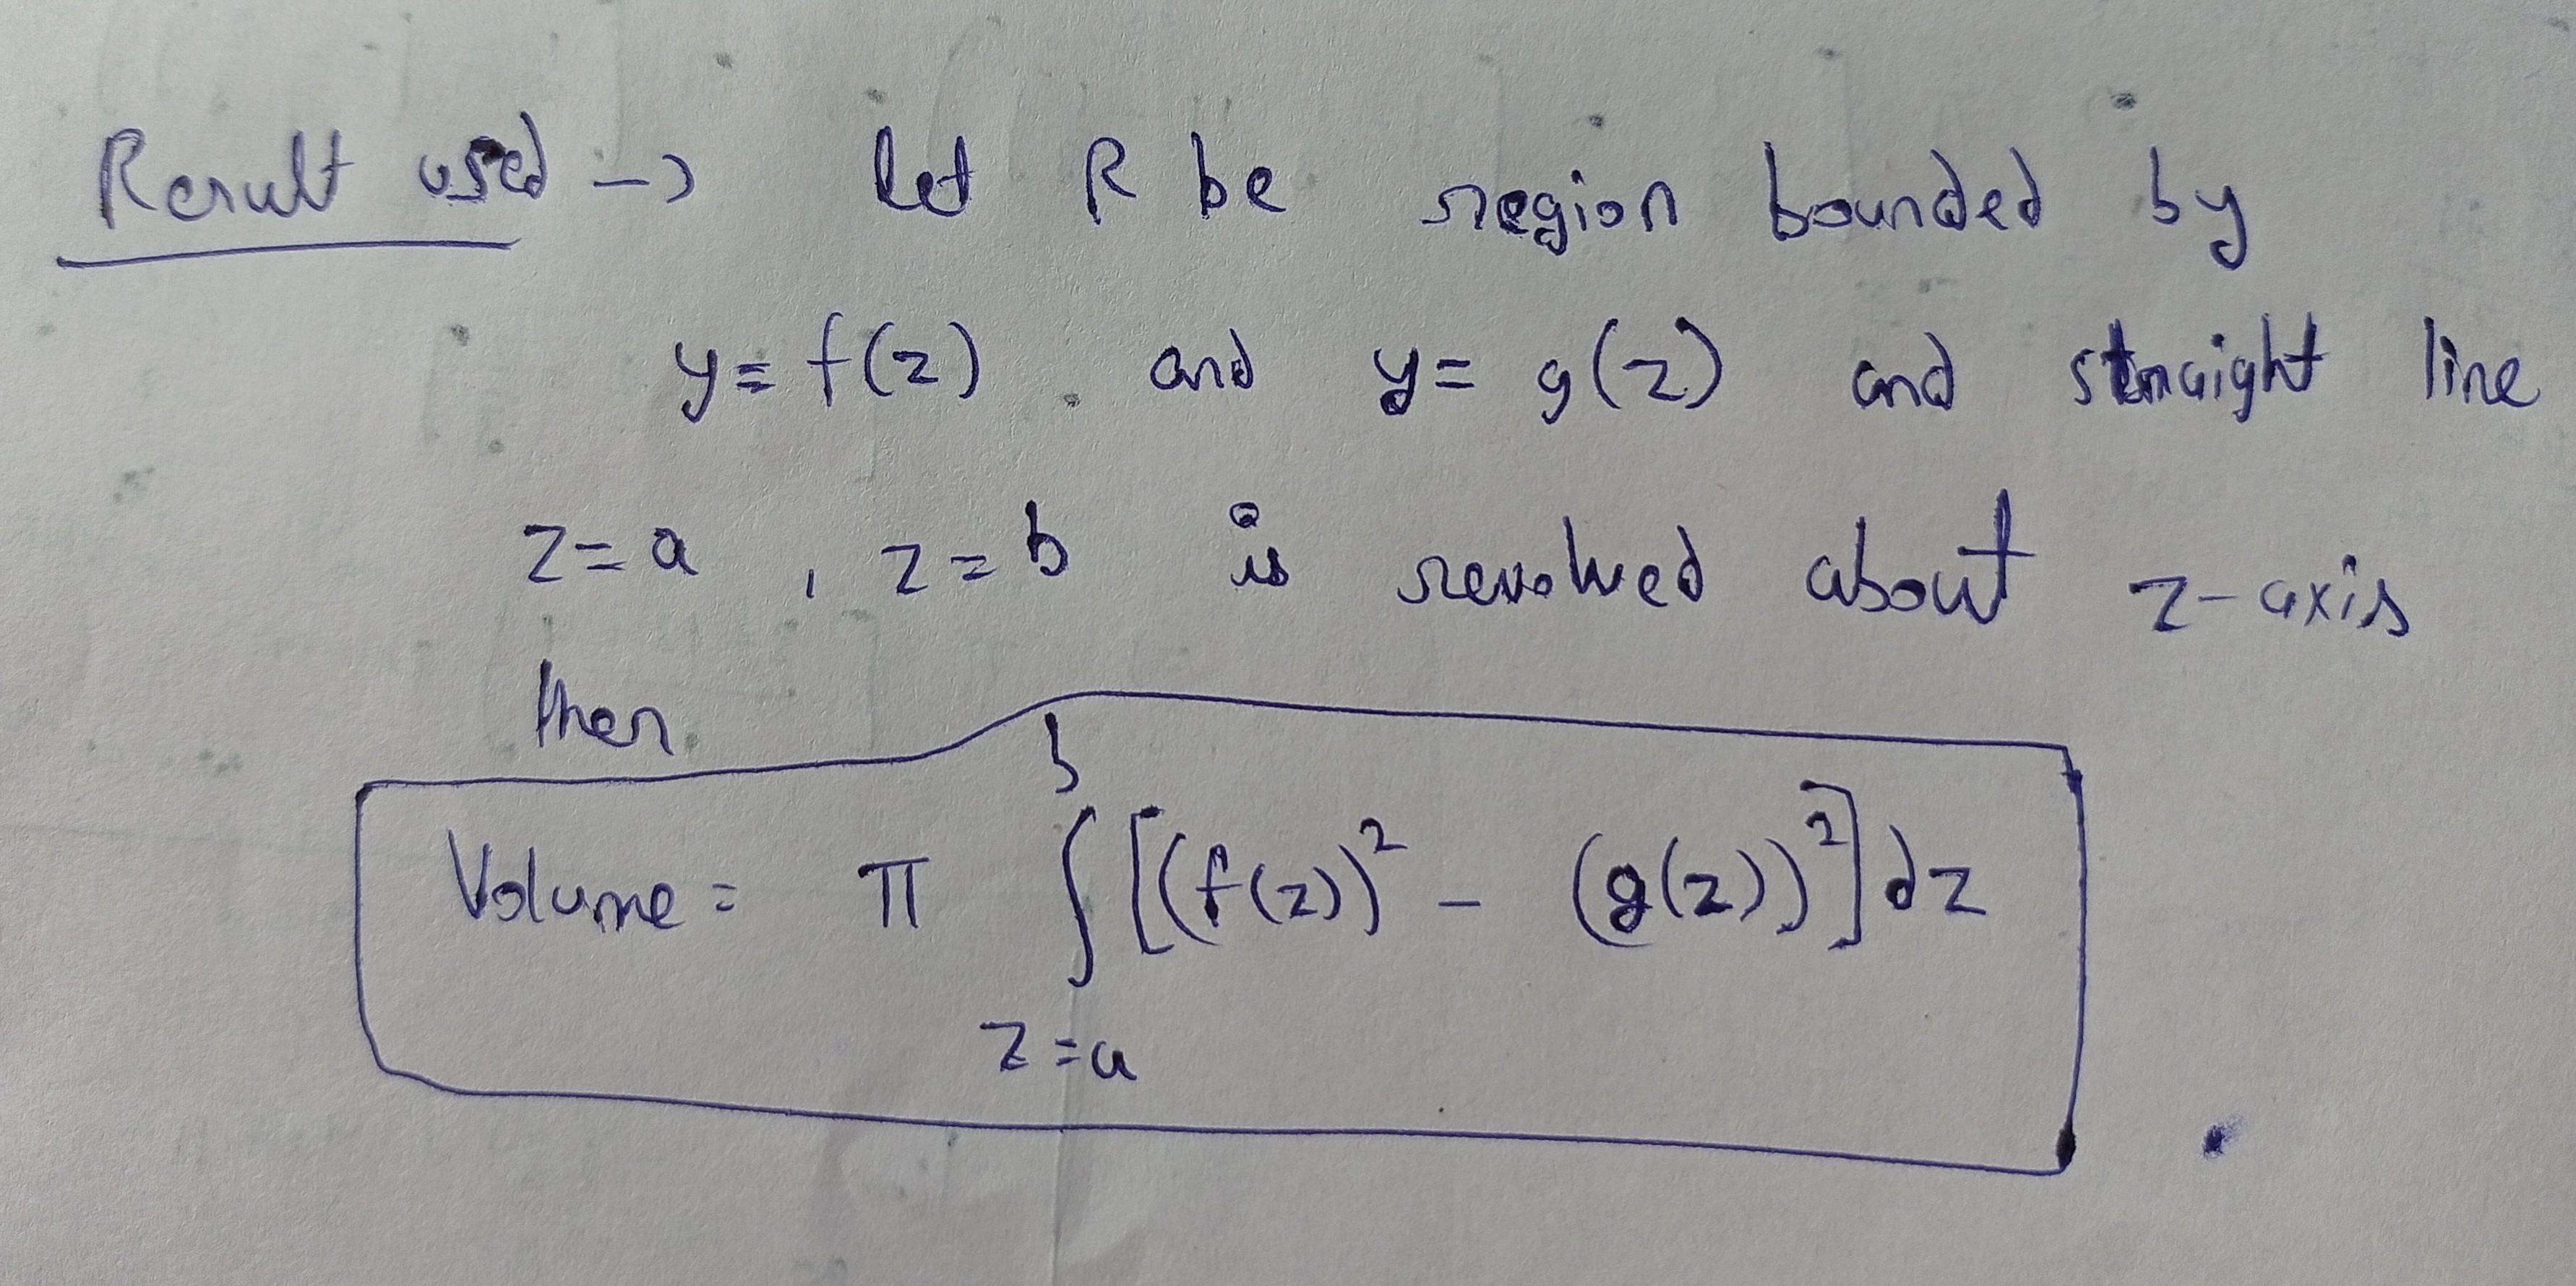 Result used -> Let R be region bounded by
y = f(z) and y = g(z) and straight line
z = a , z = b is revolved about z-axis
then
Volume = π ∫_{z=a}^{b} [(f(z))² - (g(z))²] dz